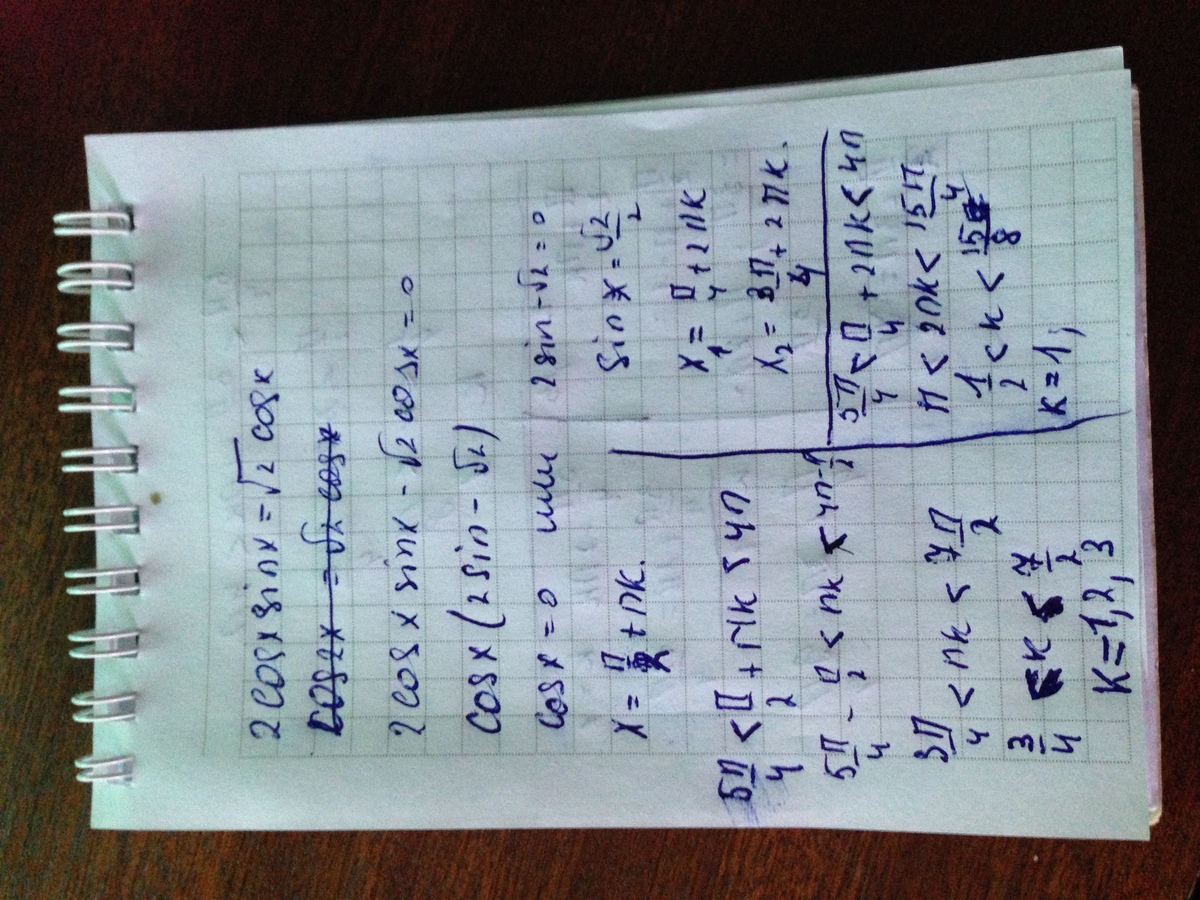 2 cos x sin x = √2 cos x
cos 2x = √2 cos x
2 cos x sin x - √2 cos x = 0
cos x (2 sin - √2)
cos x = 0 или 2 sin - √2 = 0
x = П/2 + Пk.
sin x = √2/2
x₁ = П/4 + 2Пk
x₂ = 3П/4 + 2Пk.
5П/4 < П/2 + Пk < 4П
5П/4 - П/2 < Пk < 4П - П/2
3П/4 < Пk < 7П/2
3/4 < k < 7/2
k = 1, 2, 3
5П/4 < П/4 + 2Пk < 4П
П < 2Пk < 15П/4
1/2 < k < 15/8
k = 1,